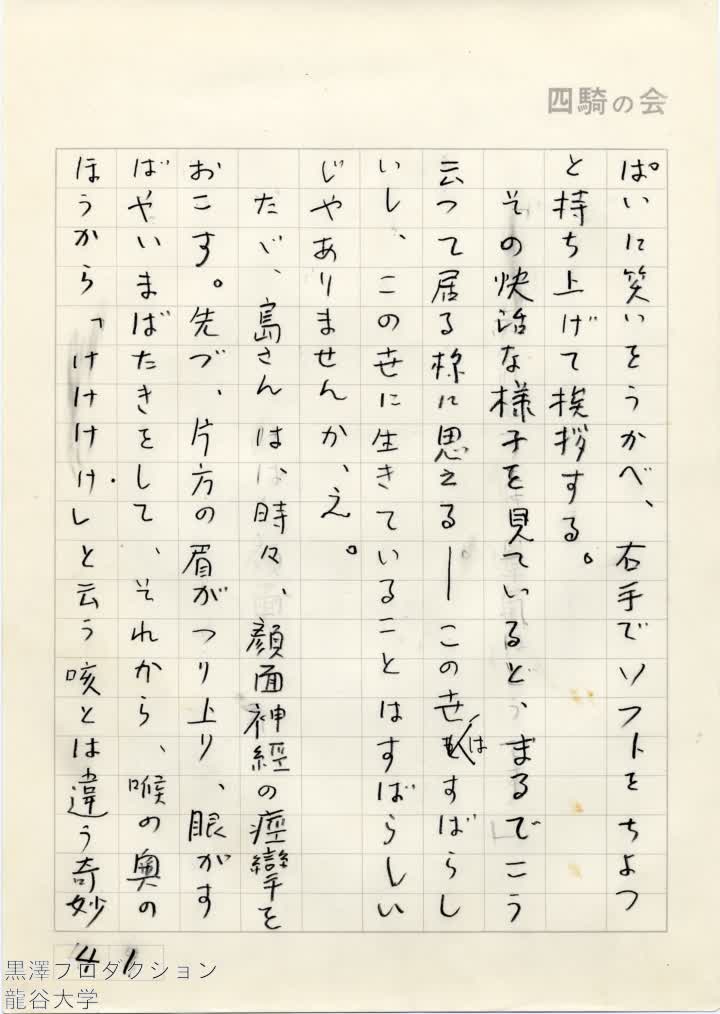 四騎の会
ぱいに笑いをうかべ、右手でソフトをちよつ
と持ち上げて挨拶する。
その快活な様子を見ていると、まるでこう
云つて居る様に思える―この世はすばらし
いし、この世に生きていることはすばらしい
じやありませんか、え。
たゞ、島さんは、時々、顔面神經の痙攣を
おこす。先づ、片方の眉がつり上り、眼がす
ばやいまばたきをして、それから、喉の奥の
ほうから「けけけけ」と云う咳とは違う奇妙
41
黒澤プロダクション
龍谷大学